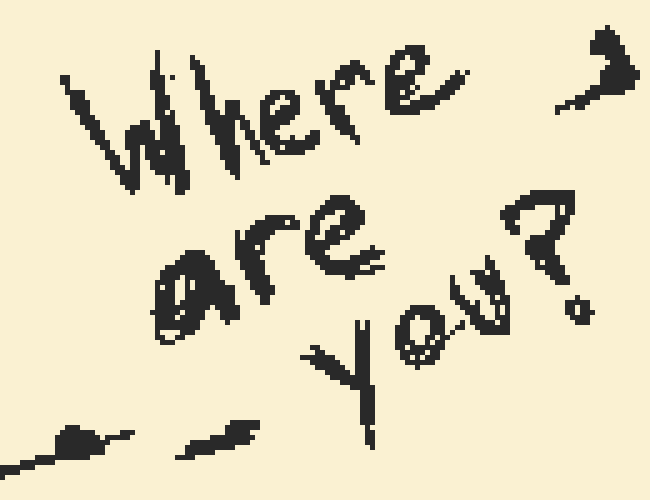 Where
are
you?